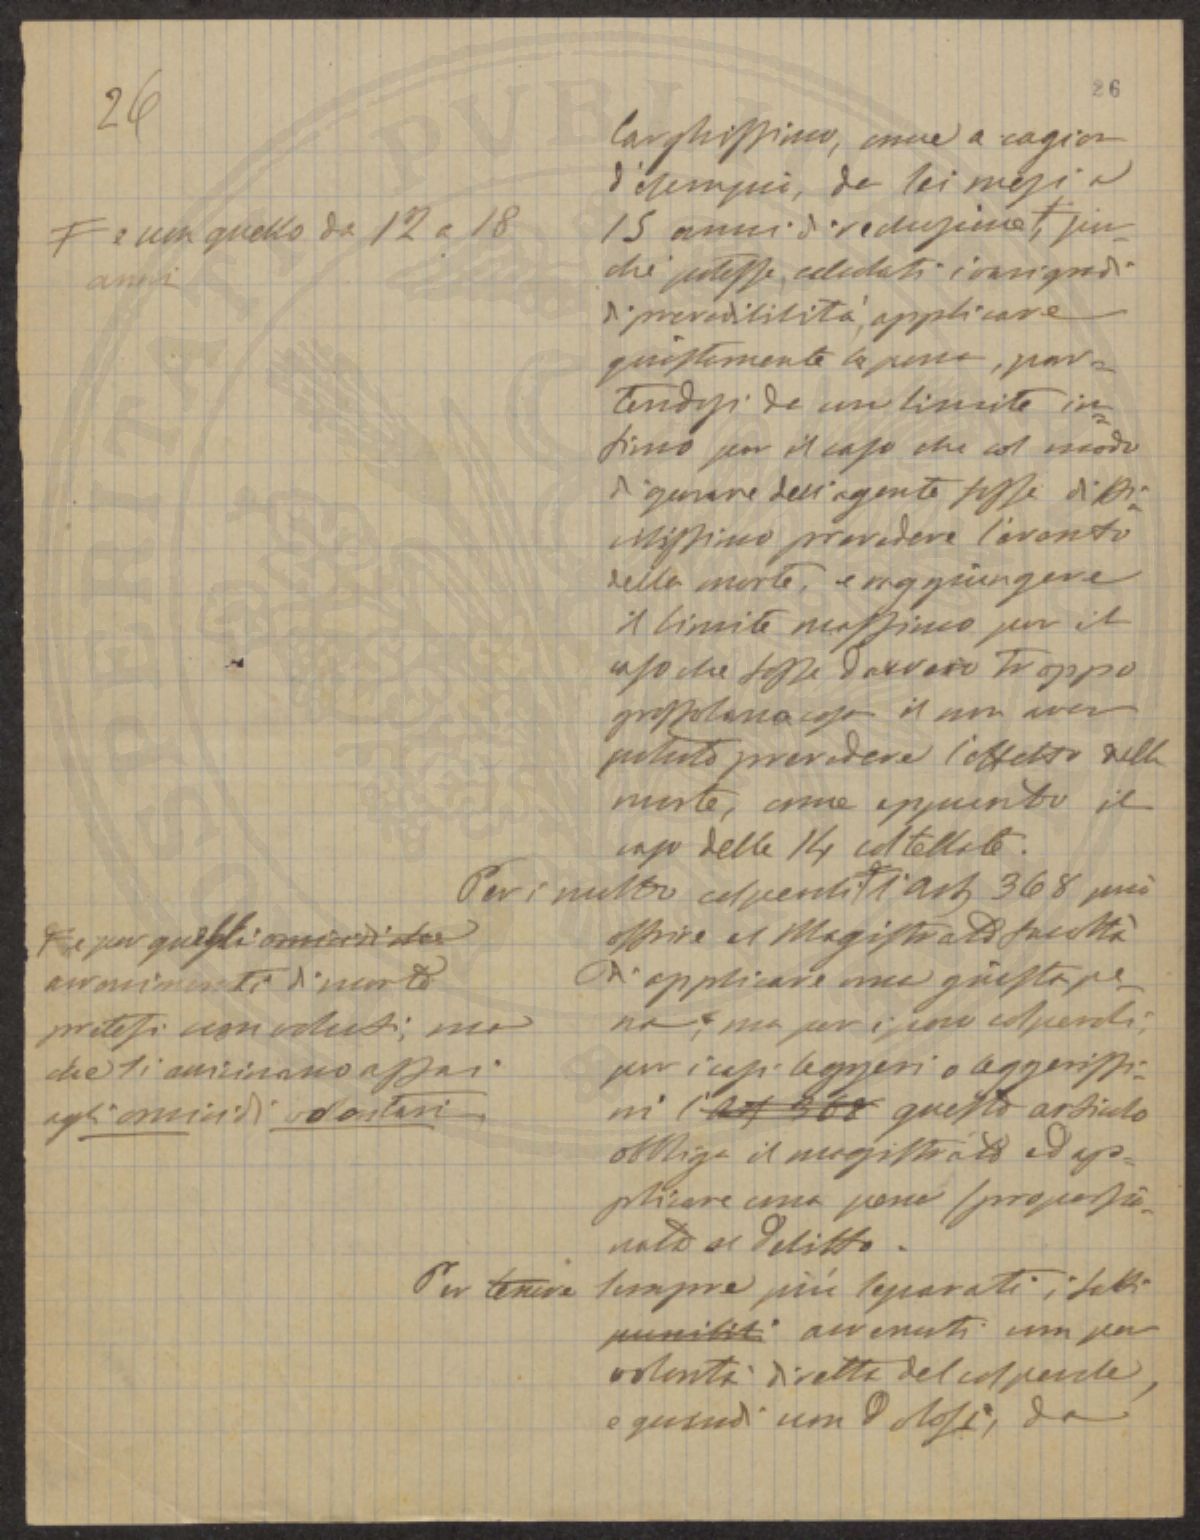 26
26
larghissimo, come a cagion
d'esempio, da sei mesi a
F e non quello da 12 a 18
anni
15 anni di reclusione F, fin-
chè potesse, calcolati i vari gradi
di prevedibilità, applicare
giustamente la pena, par-
tendosi da un limite in-
fimo per il caso che col modo
di operare dell'agente fosse diffi-
cilissimo prevedere l'evento
della morte, e raggiungere
il limite massimo per il
caso che fosse davvero troppo
grossolana cosa il non aver
potuto prevedere l'effetto della
morte, come appunto il
caso delle 14 coltellate.
Per i molto colpevoli l'art 368 può
offrire al Magistrato facoltà
di applicare una giusta pe-
na F, ma per i poco colpevoli,
per i casi leggeri o leggerissi-
mi l'art 368 questo articolo
obbliga il magistrato ad ap-
plicare una pena sproporzio-
nata al delitto.
F e per quegli omicidi che
avvenimenti di morte
pretesi non voluti, ma
che si avvicinano assai
agli omicidi volontari
Per tenere sempre più separati i fatti
punibili avvenuti non per
volontà diretta del colpevole,
e quindi non dolosi, da